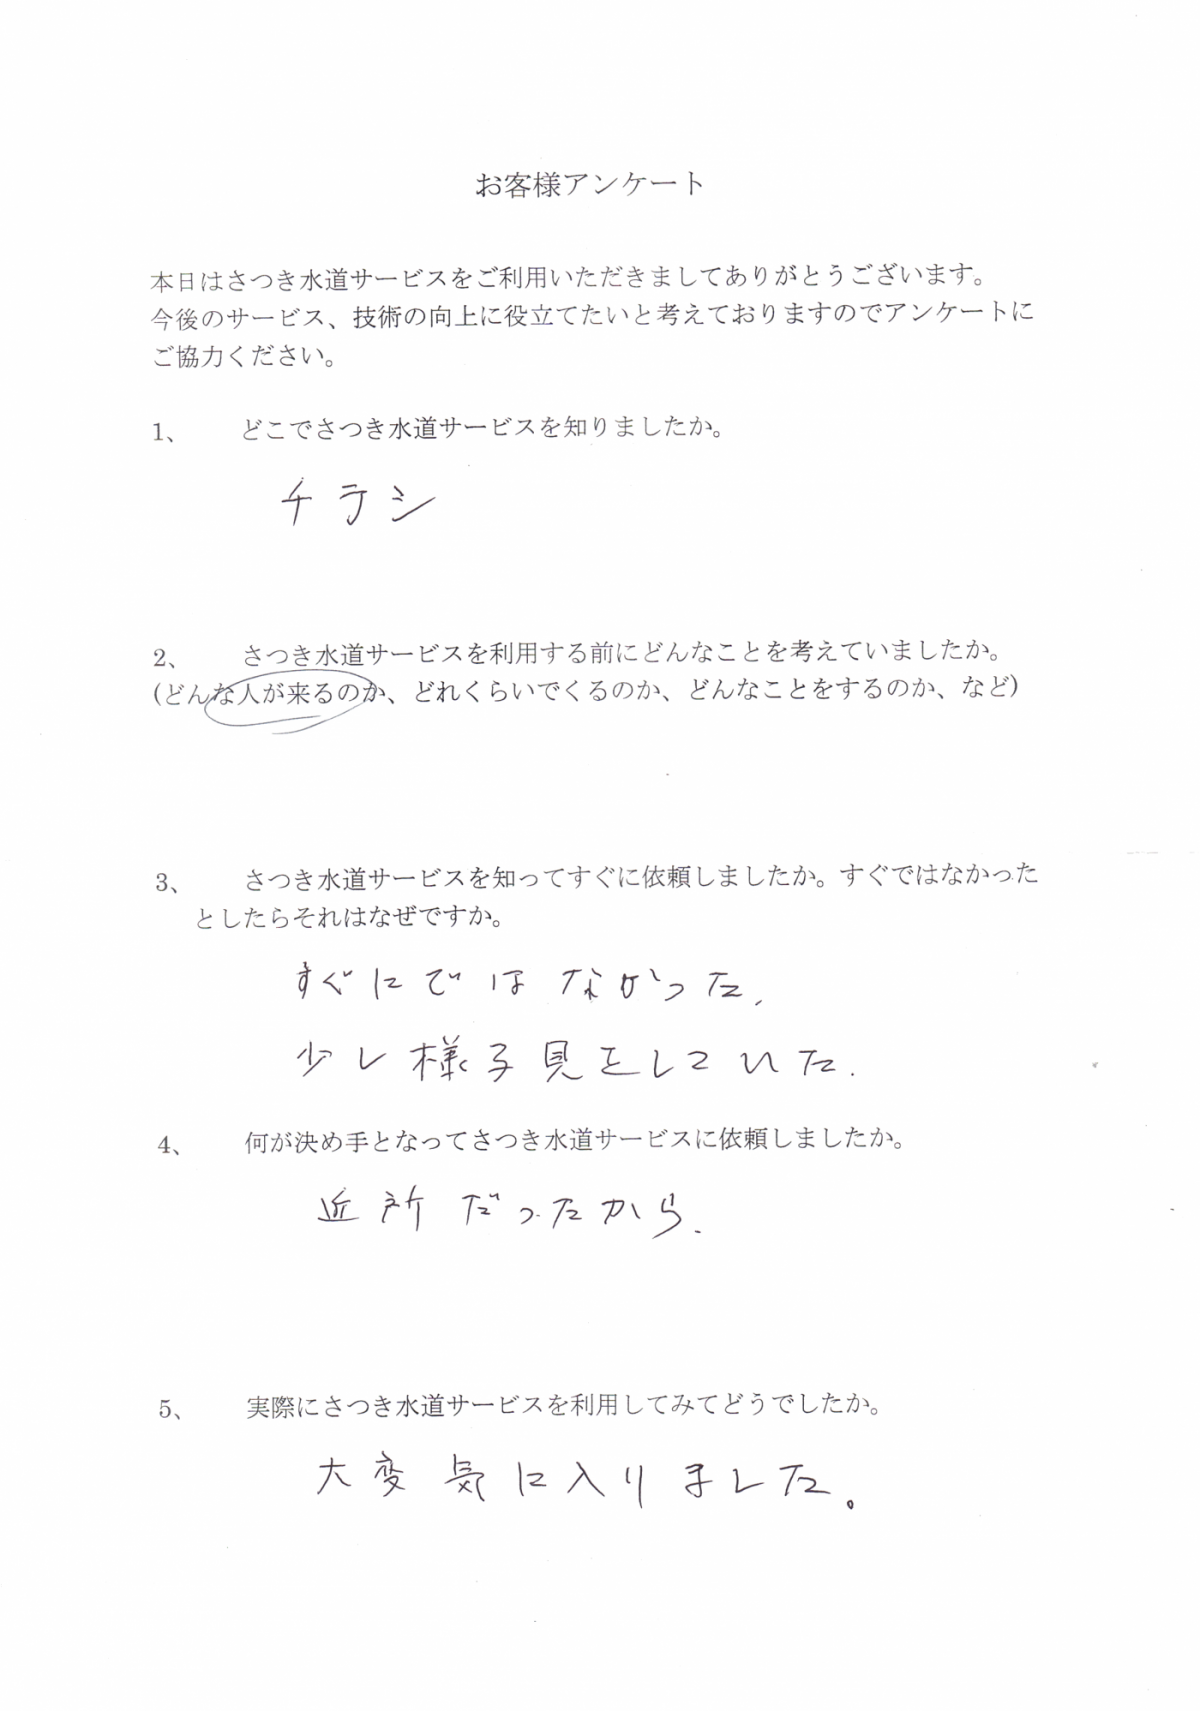 お客様アンケート
本日はさつき水道サービスをご利用いただきましてありがとうございます。
今後のサービス、技術の向上に役立てたいと考えておりますのでアンケートに
ご協力ください。
1、 どこでさつき水道サービスを知りましたか。
チラシ
2、 さつき水道サービスを利用する前にどんなことを考えていましたか。
(どんな人が来るのか、どれくらいでくるのか、どんなことをするのか、など)
3、 さつき水道サービスを知ってすぐに依頼しましたか。すぐではなかった
としたらそれはなぜですか。
すぐにではなかった.
少し様子見をしていた.
4、 何が決め手となってさつき水道サービスに依頼しましたか。
近所だったから.
5、 実際にさつき水道サービスを利用してみてどうでしたか。
大変気に入りました。